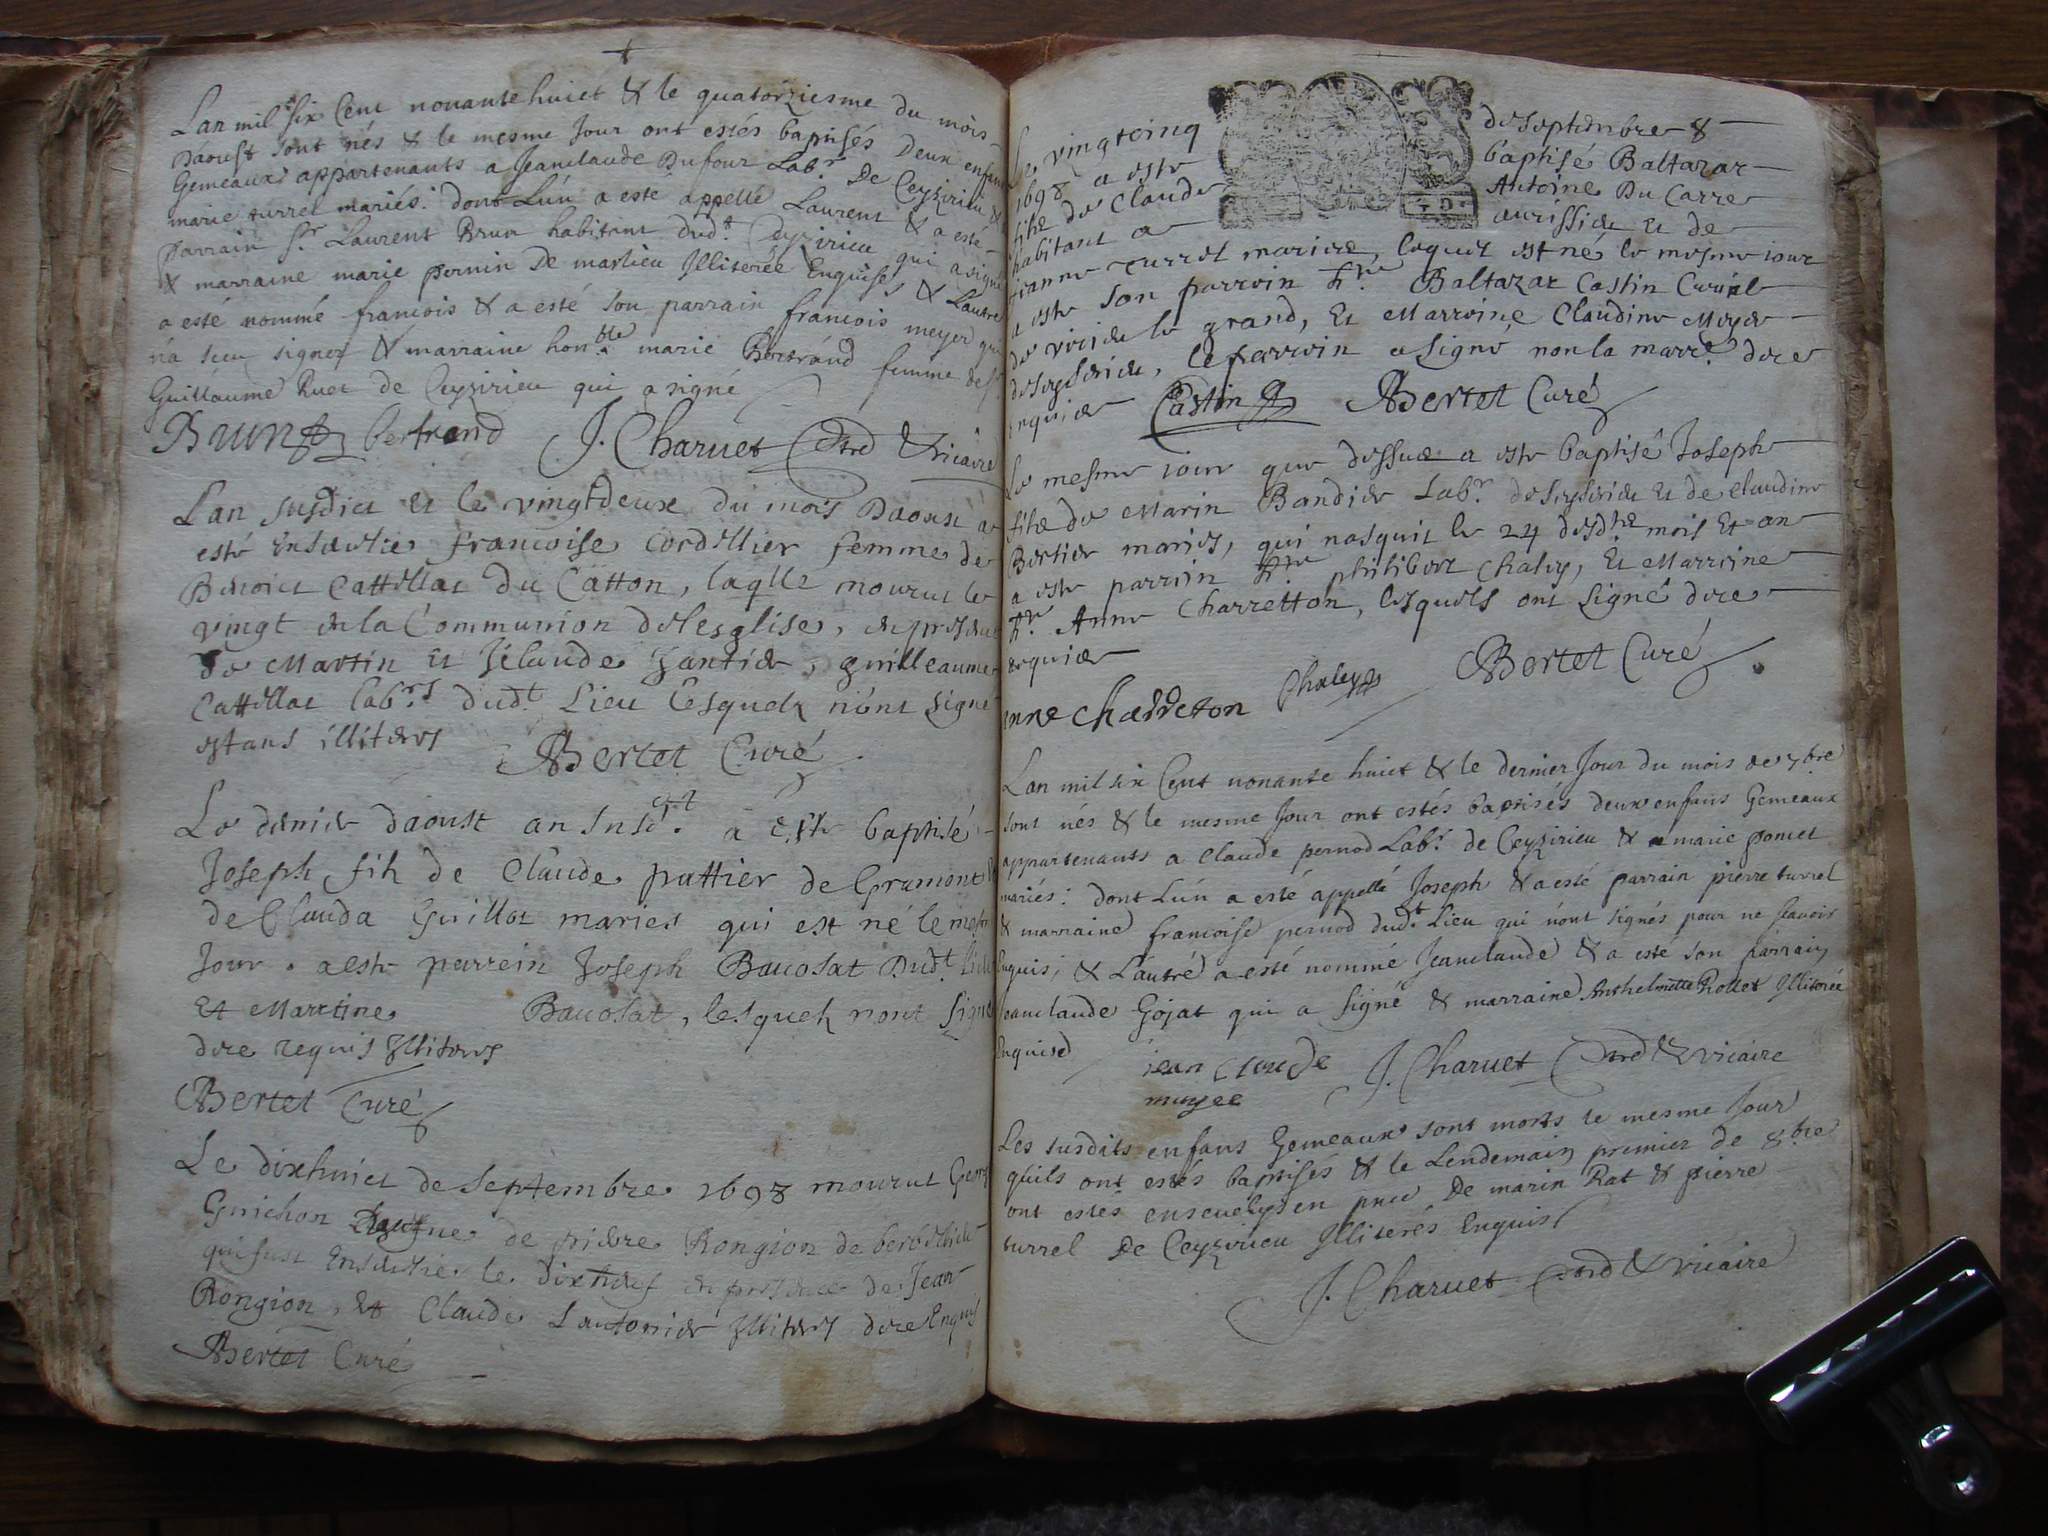 Lan mil six Cent nonante huict & le quatorziesme du mois
Daoust sont nés & le mesme Jour ont estés baptisés Deux enfans
Gemeaux appartenants a Jeanclaude Dufour Labr. De Ceyzirieu &
marie turrel mariés: dont Lún a este appellé Laurent & a esté
parrain sr. Laurent Brun habitant dudt. Ceyzirieu qui a signé
& marraine marie pernin De marlieu Illiterée Enquise, & Lautre
a esté nommé francois & a esté son parrain francois meyer qui
na sceu signer & marraine honble. marie Bertrand femme de sr.
Guillaume Ruet de Ceyzirieu qui a signé
Brun bertrand J. Charuet & vicaire
Lan susdict et le vingtdeux du mois Daoust a
esté ensevelie francoise Cordillier femme de
Benoict Cattillat du Catton, laqlle mourut le
vingt en la Communion de lesglise, en presence
de Martin et Claude Jantier, guilleaume
Cattillat labrs. dudt. Lieu Lesquels nónt signé
estans illiteres
Bertet Curé
Le dernier daoust an susdt. a este baptisé
Joseph fils de Claude puttier de Gramont &
de Clauda Guillot maries qui est né le mesme
Jour. a este parrein Joseph Bauosat Dudt. Lieu
Et Martine Bauosat, lesquels nont signé
de ce requis Illiteres
Bertet Curé
Le dixhuict de septembre 1698 mourut George
Guichon de pierre Rongion de
qui fust Ensevelie le dixneuf en presence de Jean
Rongion, Et Claude Lantonier Illiteres de ce Enquis
Bertet Curé
Le vingtcinq de septembre &
1698 a este baptisé Baltazar
fils de Claude Antoine Du Carre
habitant a aurissieu et de
Jeanne Turrel maries, lequel est né le mesme iour
a este son parrein hre. Baltazar Castin Curial
de virieu le grand, Et Marreine Claudine Meyer
de Ceyserieu, le parrein a signe non la marre. de ce
enquise Castin Bertet Curé
Le mesme iour que dessus a este baptisé Joseph
fils de Marin Bandier Labr. de Ceyserieu et de claudine
Bertier mariés, qui nasquit le 24 desdts mois Et an
a este parrein hre philibert Chaley, Et Marreine
hre. Anne Charretton, lesquels ont signé de ce
requis
anne charreton Chaley Bertet Curé
Lan mil six Cent nonante huict & le dernier Jour du mois de 7bre
sont nés & le mesme Jour ont estés baptisés deux enfans Gemeaux
appartenants a Claude pernod Labr. de Ceyzirieu & a marie poncet
mariés: dont Lún a esté appellé Joseph & a esté parrain pierre turrel
& marraine francoise pernod dudt. Lieu qui nónt signés pour ne scavoir
Enquis; & Lautre a esté nommé Jeanclaude & a esté son parrain
Jeanclaude Gojat qui a signé & marraine Anthelmette Rollet Illiterée
Enquise
iean claude J. Charuet & vicaire
Les susdits enfans Gemeaux sont morts le mesme Jour
quils ont estés baptisés & le Lendemain premier de 8bre
ont estés ensevelys en pnce De marin Rat & pierre
turrel De Ceyzirieu Illiterés Enquis
J. Charuet & vicaire